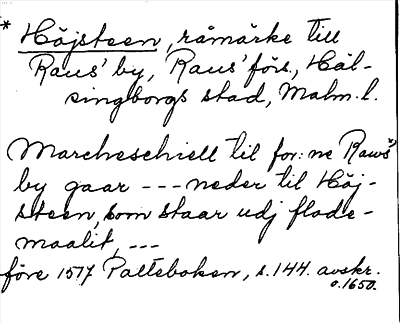 * Höjsteen, råmärke till
Raus' by, Raus' förs., Häl-
singborgs stad, Malm. l.
Marcheschiell til for: ne Rawš
by gaar --- neder til Höj-
steen, som staar udj flode-
maalit, ---
före 1517 Palteboken, s. 144. avskr.
o. 1650.